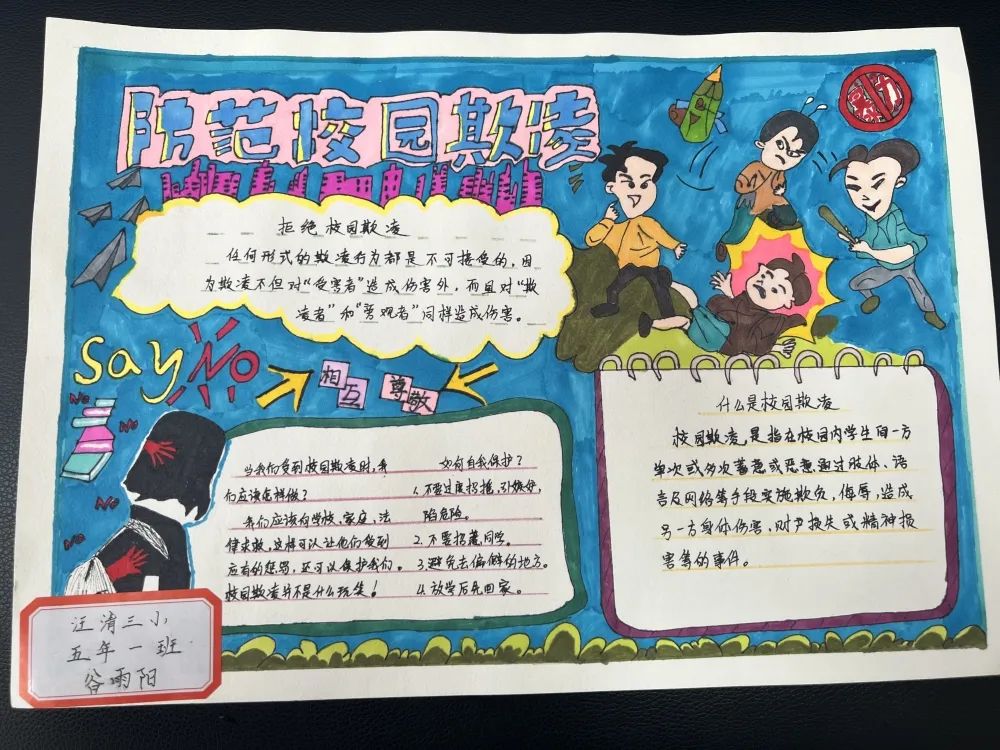 防范校园欺凌
拒绝校园欺凌
任何形式的欺凌行为都是不可接受的,因
为欺凌不但对“受害者”造成伤害外,而且对“欺
凌者”和“旁观者”同样造成伤害。
Say No
相互 尊敬
No
No
No
No
当我们受到校园欺凌时,我
们应该怎样做?
我们应该向学校、家庭、法
律求救,这样可以让他们受到
应有的惩罚,还可以保护我们。
校园欺凌并不是什么玩笑!
如何自我保护?
1.不要过度招摇,引嫉妒,
陷危险。
2.不要招惹同学。
3.避免去偏僻的地方。
4.放学后先回家。
什么是校园欺凌
校园欺凌,是指在校园内学生间一方
单次或多次蓄意或恶意通过肢体、语
言及网络等手段实施欺负,侮辱,造成
另一方身体伤害,财产损失或精神损
害等的事件。
汪清三小
五年一班
谷雨阳